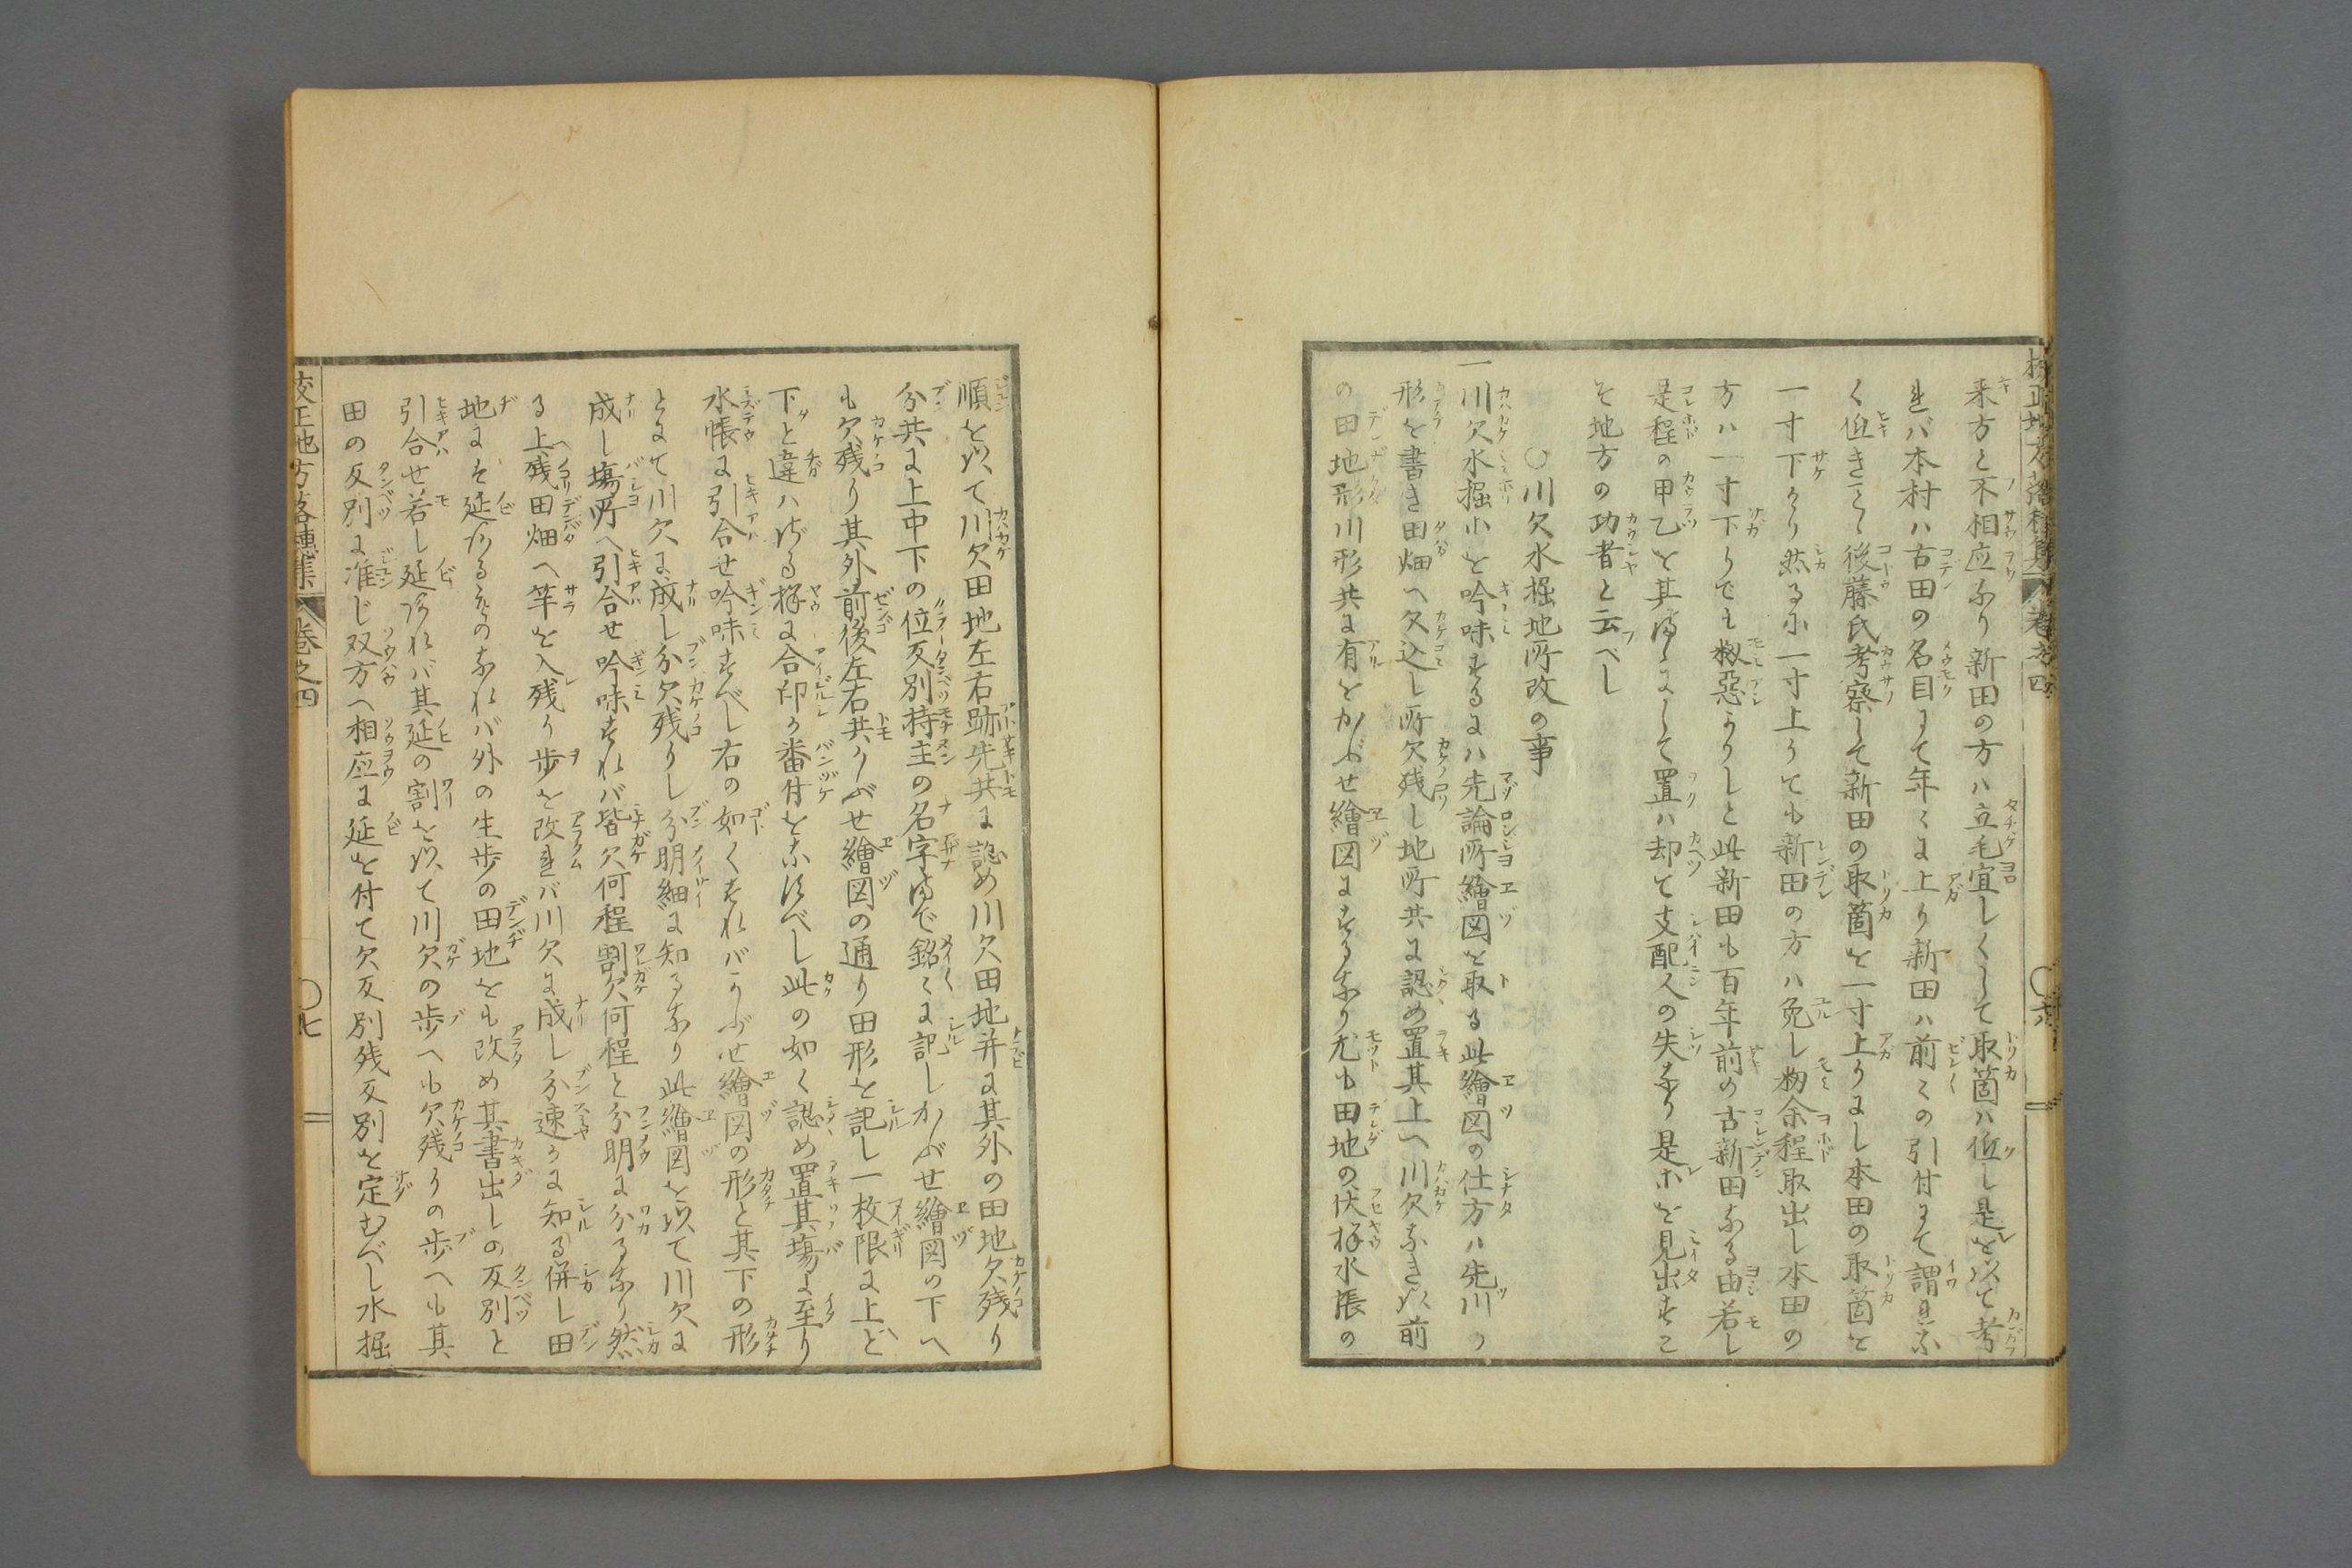 来方と不相応なり新田の方ハ立毛宜しくして取箇ハ低し是を以て考
れバ本村ハ古田の名目にて年々に上り新田ハ前々の引付にて謂れな
く低きこと後藤氏考察して新田の取箇を一寸上りにし本田の取箇を
一寸下げたり然るに一寸上りても新田の方ハ免し籾余程取出し本田の
方ハ一寸下りでも籾惡かりしと此新田も百年前の古新田なる由若し
是程の甲乙を其侭にして置ハ却て支配人の失なり是ホを見出すこ
そ地方の功者と云べし
○川欠水掘地所改の事
一川欠水掘小を吟味するにハ先論所繪図を取る此繪図の仕方ハ先川の
形を書き田畑へ欠込し所欠残し地所共に認め置其上へ川欠なき以前
の田地形川形共に有をかぶせ繪図にするなり尤も田地の伏様水張の
順を以て川欠田地左右跡先共に認め川欠田地并に其外の田地欠残り
分共に上中下の位反別持主の名字迄で銘々に記しかぶせ繪図の下へ
も欠残り其外前後左右共かぶせ繪図の通り田形を記し一枚限に上と
下と違ハざる様に合印か番付を為すべし此の如く認め置其場に至り
水帳に引合せ吟味すべし右の如くすれバかぶせ繪図の形と其下の形
とにて川欠に成し分欠残りし分明細に知るなり此繪図を以て川欠に
成し場所へ引合せ吟味すれバ皆欠何程割欠何程と分明に分るなり然
る上残田畑へ竿を入残り歩を改れバ川欠に成し分速かに知る併し田
地にも延びあるものなれバ外の生歩の田地をも改め其書出しの反別と
引合せ若し延あれバ其延の割を以て川欠の歩へも欠残りの歩へも其
田の反別に准じ双方へ相応に延を付て欠反別残反別を定むべし水掘
校正地方落穂集 巻之四 ○七